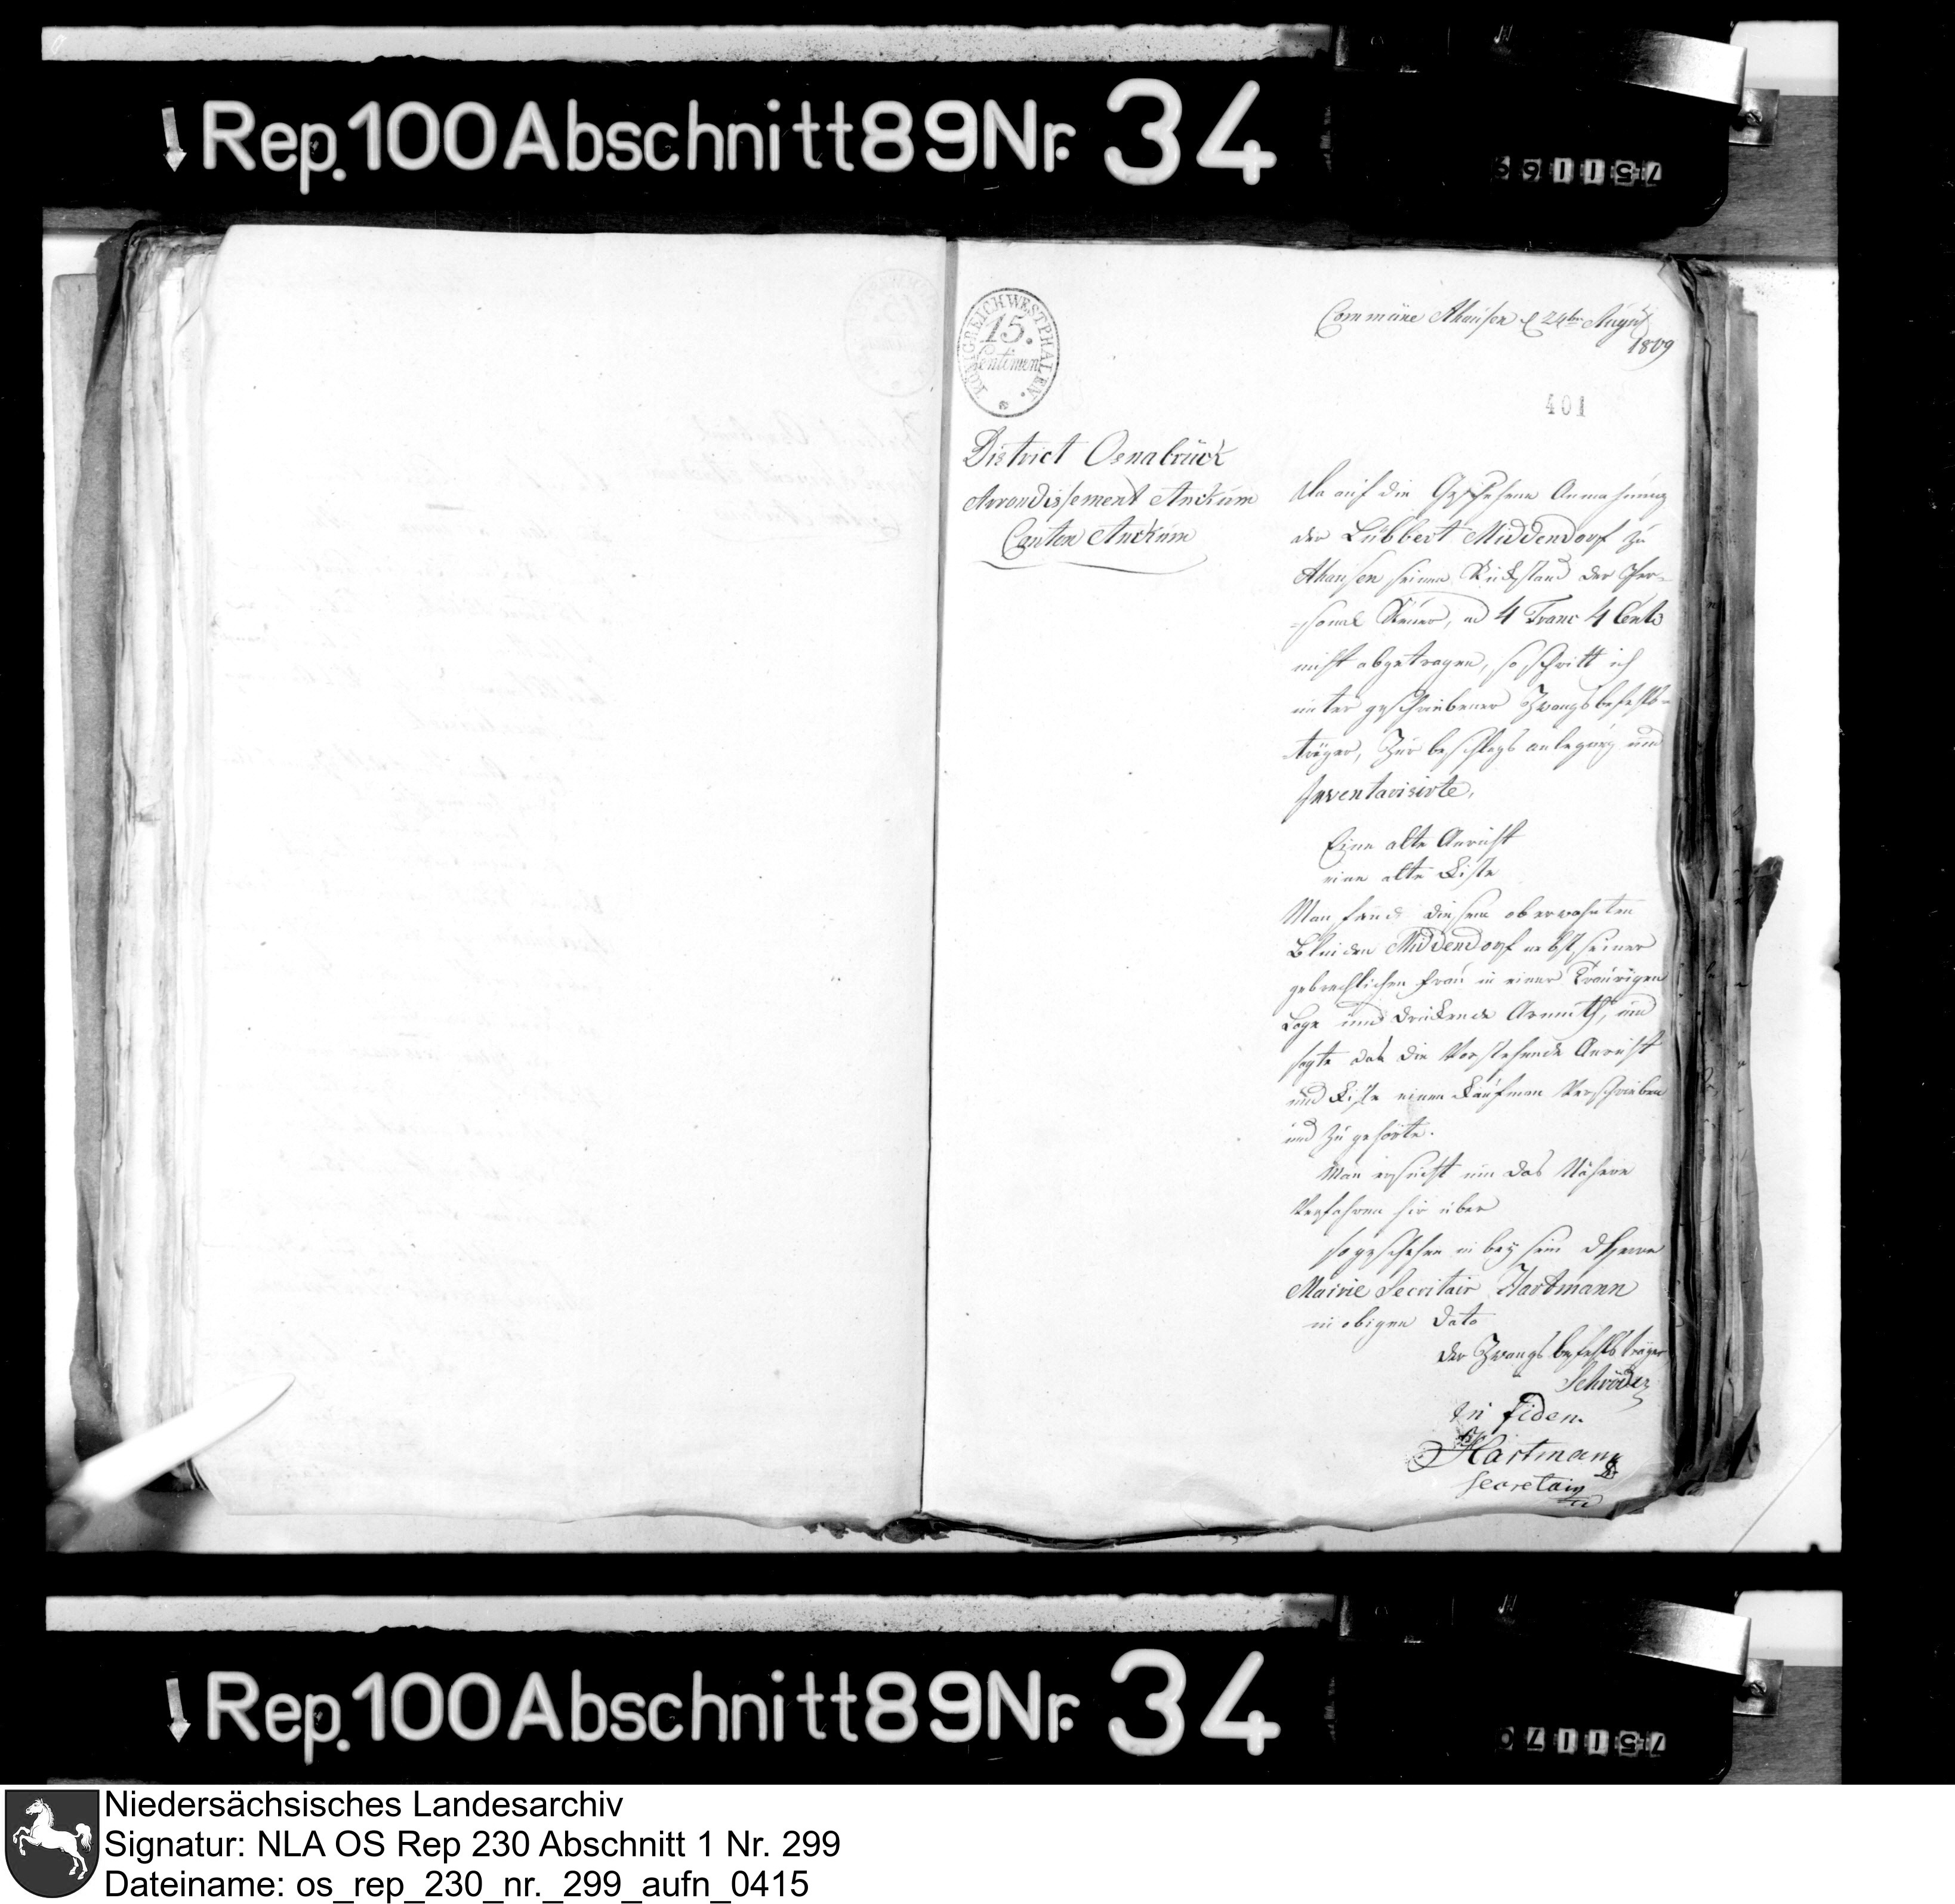 Rep. 100 Abschnitt 89 Nr. 34
751169
KÖNIGREICH WESTPHALEN.
15.
Centimen
Commüne Ahausen d 24ten August
1809
401
District Osnabrück
Arrondissement Anckum
Canton Anckum
Da auf die Geschehene Anmahnung
der Lübbert Middendorf zu
Ahausen seinen Rückstand der Per-
-sonal Steuer, ad 4 Franc 4 Cents
nicht abgetragen, so schritt ich
unter geschriebener Zwangsbefehls-
träger, zur beschlags anlegung und
Inventarisirte,
Eine alte Anricht
eine alte Kiste
Man fand diesen oberwehnten
Blinden Middendorf nebst seiner
gebrechlichen Frau in einer Traurigen
Lage und drückende Armuth, und
sagte das die Vorstehende Anricht
und Kiste einen Kaufman Verschrieben
und zu gehörte.
Man ersucht um das Nähere
Verfahren hir über
so geschehen in bey sein Herrn
Mairie Secritair Hartmann
in obigen Dato
der Zwangsbefehlsträger
Schröder
In fidem
Hartmann
Secretair
Rep. 100 Abschnitt 89 Nr. 34
751170
Niedersächsisches Landesarchiv
Signatur: NLA OS Rep 230 Abschnitt 1 Nr. 299
Dateiname: os_rep_230_nr._299_aufn_0415